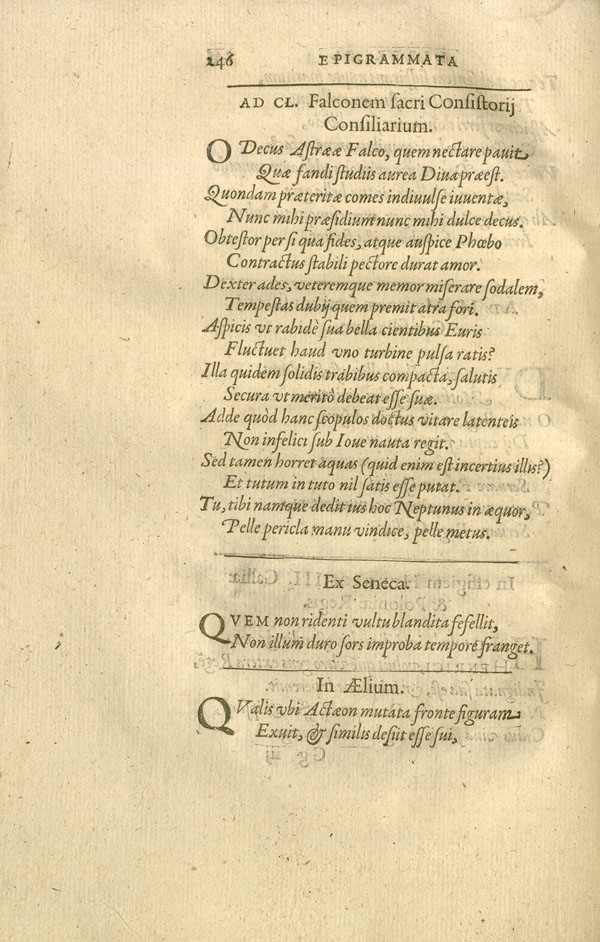 246 EPIGRAMMATA
AD CL. Falconem ſacri Conſiſtorij
Conſiliarium.
O Decus Aſtrææ Falco, quem nectare pauit
Quæ fandi ſtudiis aurea Diua præeſt.
Quondam præteritæ comes indiuulſe iuuentæ,
Nunc mihi præſidium nunc mihi dulce decus.
Obteſtor per ſi qua fides, atque auſpice Phœbo
Contractus ſtabili pectore durat amor.
Dexter ades, veteremque memor miſerare ſodalem,
Tempeſtas dubij quem premit atra fori.
Aſpicis vt rabidè ſua bella cientibus Euris
Fluctuet haud vno turbine pulſa ratis?
Illa quidem ſolidis trabibus compacta, ſalutis
Secura vt meritò debeat eſſe ſuæ.
Adde quòd hanc ſcopulos doctus vitare latenteis
Non infelici ſub Ioue nauta regit.
Sed tamen horret aquas (quid enim eſt incertius illis?)
Et tutum in tuto nil ſatis eſſe putat.
Tu, tibi namque dedit ius hoc Neptunus in æquor,
Pelle pericla manu vindice, pelle metus.
Ex Seneca.
QVEM non ridenti vultu blandita fefellit,
Non illum duro ſors improba tempore franget.
In Ælium.
QValis vbi Actæon mutata fronte figuram
Exuit, & ſimilis deſiit eſſe ſui,